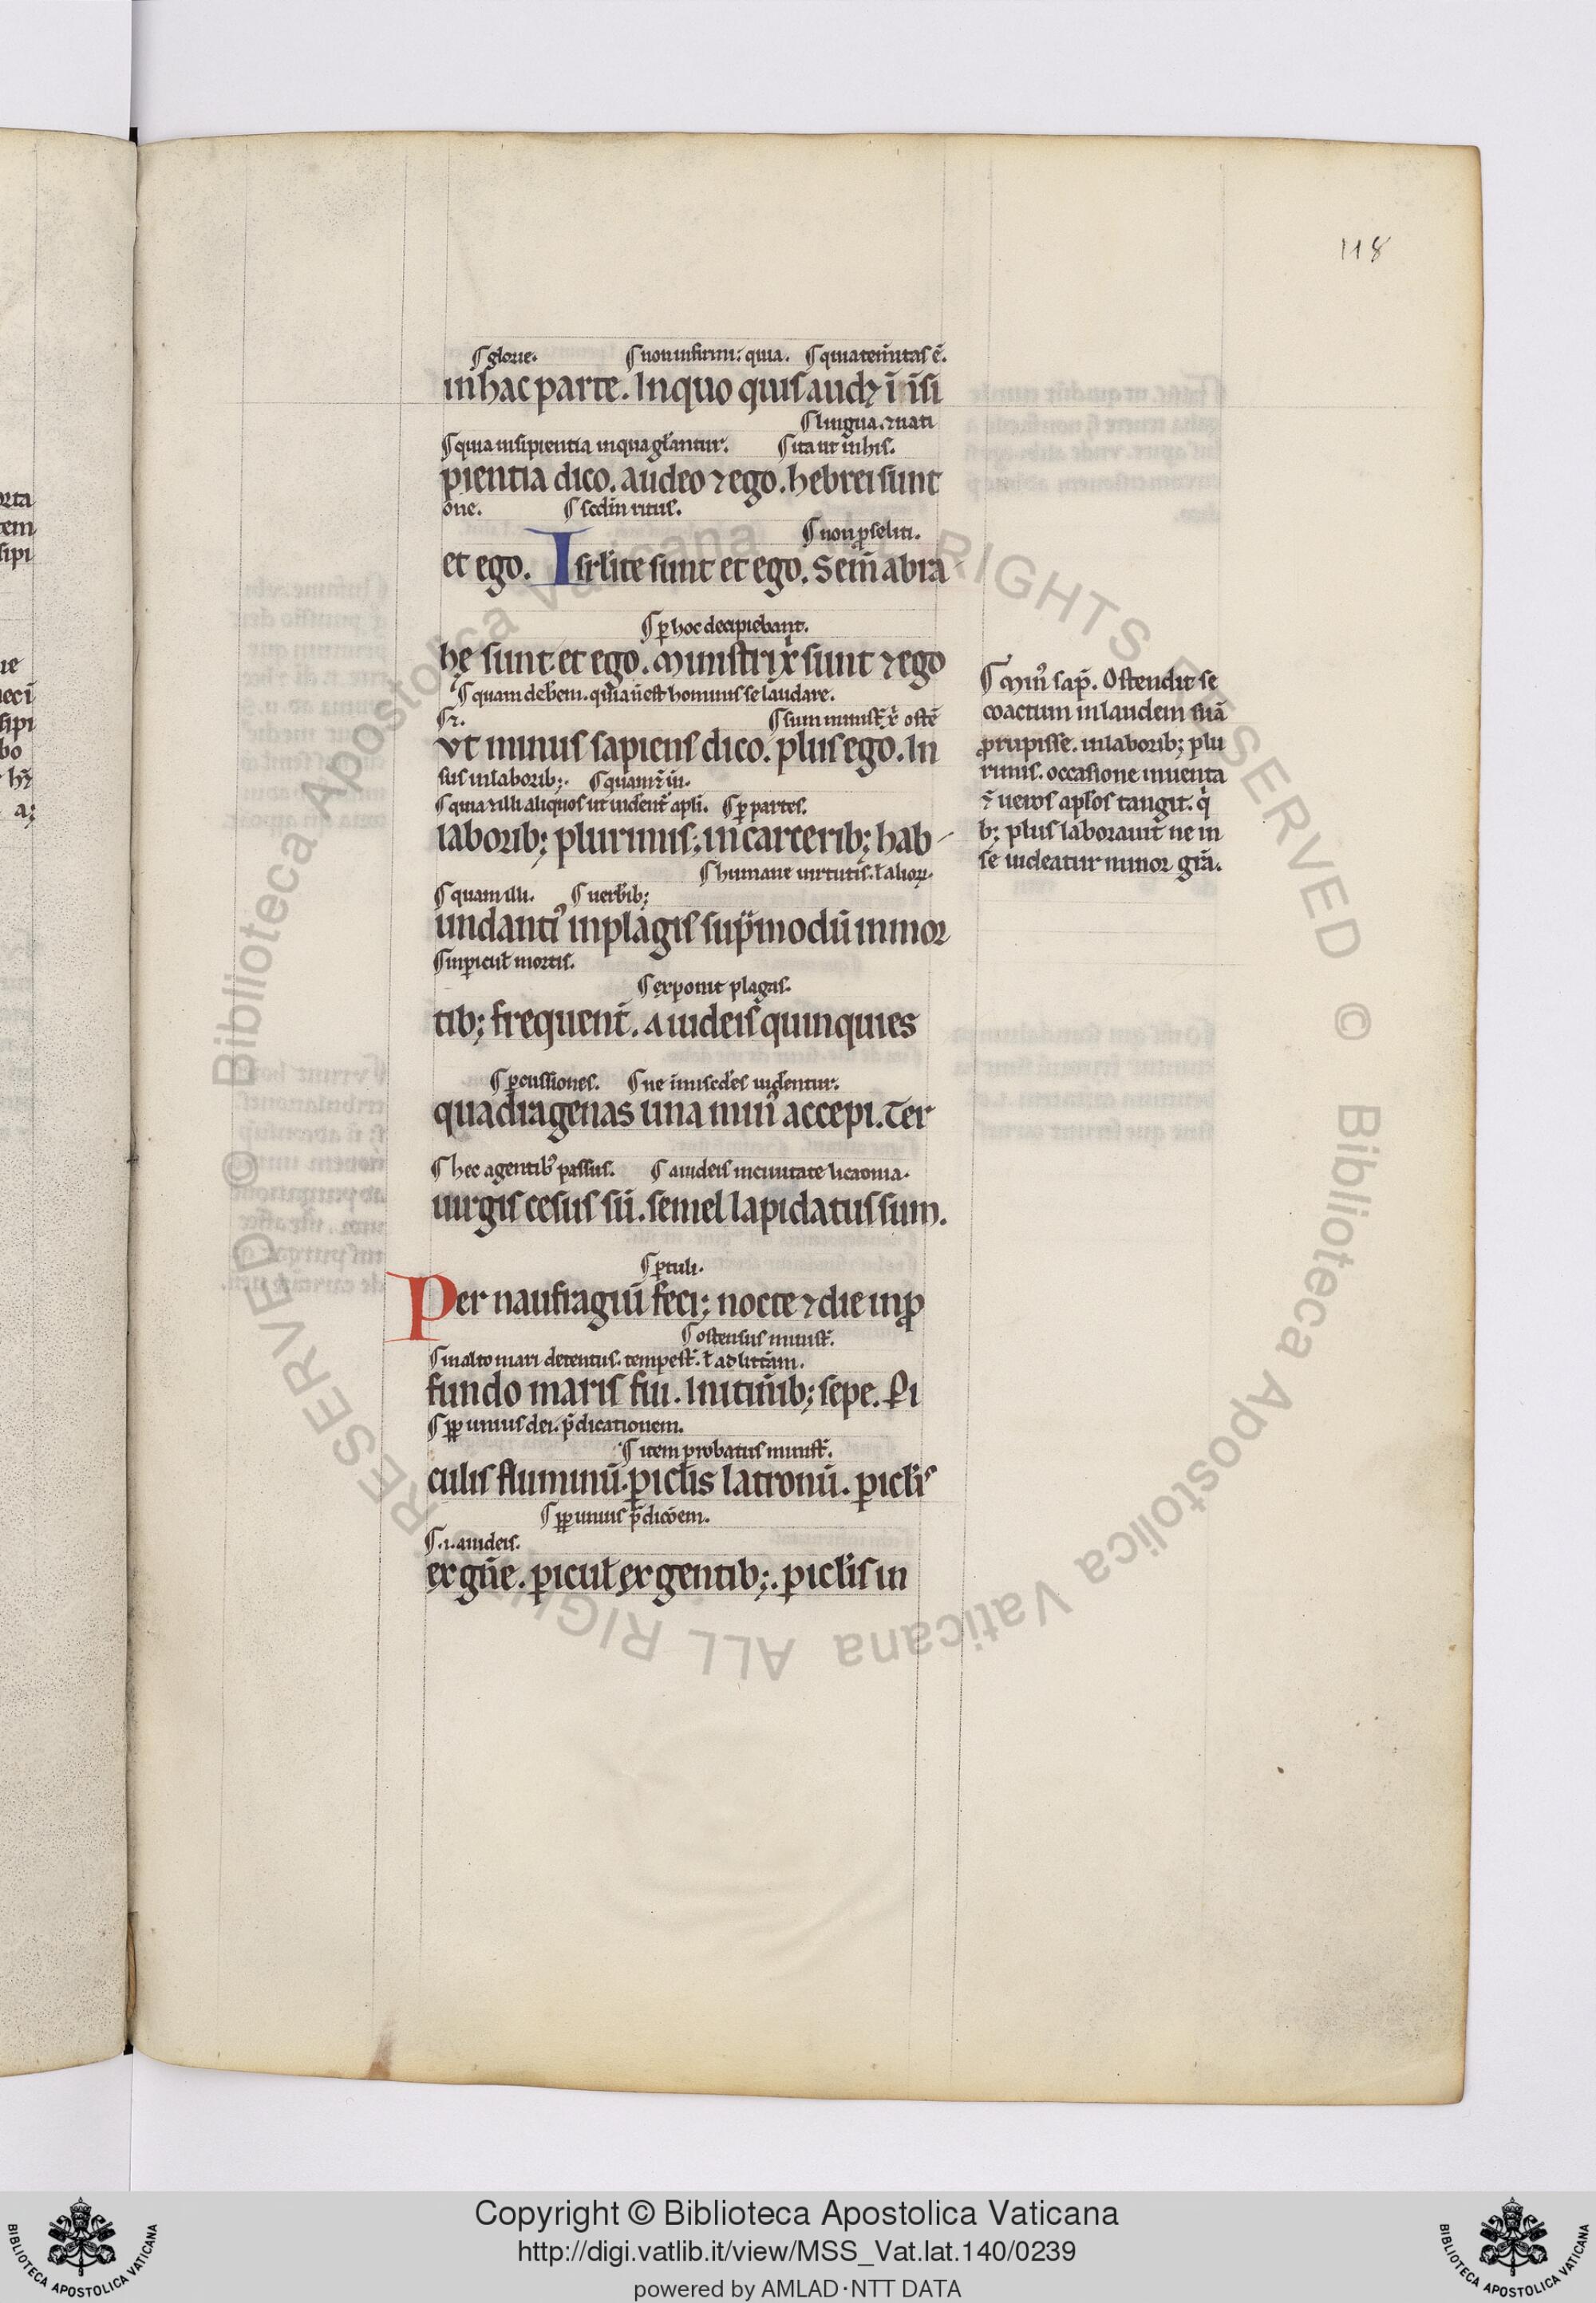 118
¶ glorie. ¶ non infirmi. quia. ¶ quia temītas ē.
in hac parte. In quo quis audꝫ ī īsi
¶ lingua. ⁊ nati
¶ quia insipientia in qua gl̄antur. ¶ ita ut ī his.
pientia dico. audeo ⁊ ego. hebrei sunt
one. ¶ sed in ritus.
¶ non ꝓseliti.
et ego. Isrl̄ite sunt et ego. Sem̄ abra
¶ ꝑ hoc decipiebant.
hę sunt et ego. Ministri xp̄i sunt ⁊ ego
¶ quam deb̄em. quia n̄ est hominis se laudare.
¶ ⁊. ¶ sum minist̄. x̄. ostē
vt minus sapiens dico. plus ego. In
sus in laborib;. ¶ quam ⁊ ill̄i.
¶ quia ⁊ illi aliquos ut uident̄ apl̄i. ¶ ꝑ partes.
laborib; plurimis; in carcerib; hab-
¶ humane uirtutis. ł alioꝝ.
¶ quam illi. ¶ uerb̄ib;
undanti᷒ in plagis sup̄ modū in mor
¶ in ꝑicul̄ mortis.
¶ exponit plagas.
tib; frequent̄. A iudeis quinquies
¶ ꝑcussiones. ¶ ne īmis̄cdes uid̄entur.
quadragenas una min᷒ accepi. Ter
¶ hec a gentib᷒ passus. ¶ a iudeis in ciuitate licaonia.
uirgis cesus sū. semel lapidatus sum.
¶ ꝑtuli.
Per naufragiū feci; nocte ⁊ die in ꝓ
¶ ostensus minist̄.
¶ in alto mari detentus. tempest̄. ł ad litt̄am.
fundo maris fui. In itin̄ib; sepe. Ꝑi
¶ ꝓp̄ unius dei. p̄dicationem.
¶ item probatus minist̄.
culis fluminū. ꝑicl̄is latronū. ꝑicl̄is
¶ ꝓp̄ unius p̄dicōem.
¶ .i. a iudeis.
ex gn̄e. ꝑicul̄ ex gentib;. ꝑicl̄is in
¶ Min᷒ sap̄. Ostendit se
coactum in laudem suā
prupisse. in laborib; plu
rimis. occasione inuenta
⁊ ueros apl̄os tangit. q̇
b; plus laborauit ne in
se uideatur minor gr̄a.
Copyright © Biblioteca Apostolica Vaticana
http://digi.vatlib.it/view/MSS_Vat.lat.140/0239
powered by AMLAD·NTT DATA
BIBLIOTECA APOSTOLICA VATICANA
BIBLIOTECA APOSTOLICA VATICANA
© Biblioteca Apostolica Vaticana ALL RIGHTS RESERVED
© Biblioteca Apostolica Vaticana ALL RIGHTS RESERVED